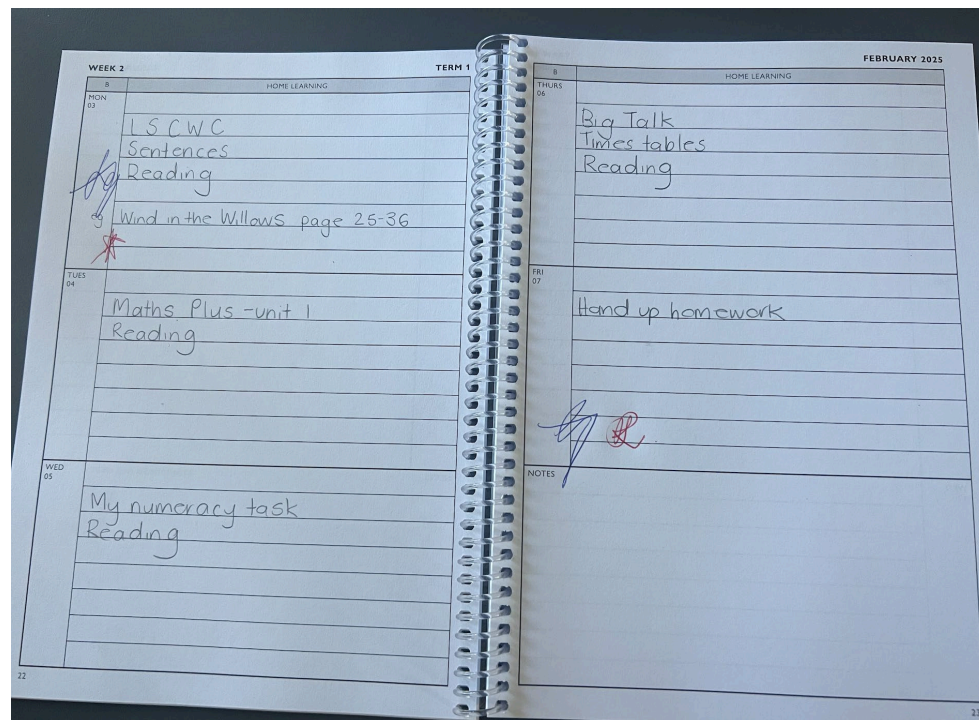 WEEK 2 TERM 1
B HOME LEARNING
MON
03
LSCWC
Sentences
Reading
eg Wind in the Willows page 25-36
TUES
04
Maths Plus -unit 1
Reading
WED
05
My numeracy task
Reading
22
FEBRUARY 2025
B HOME LEARNING
THURS
06
Big Talk
Times tables
Reading
FRI
07
Hand up homework
NOTES